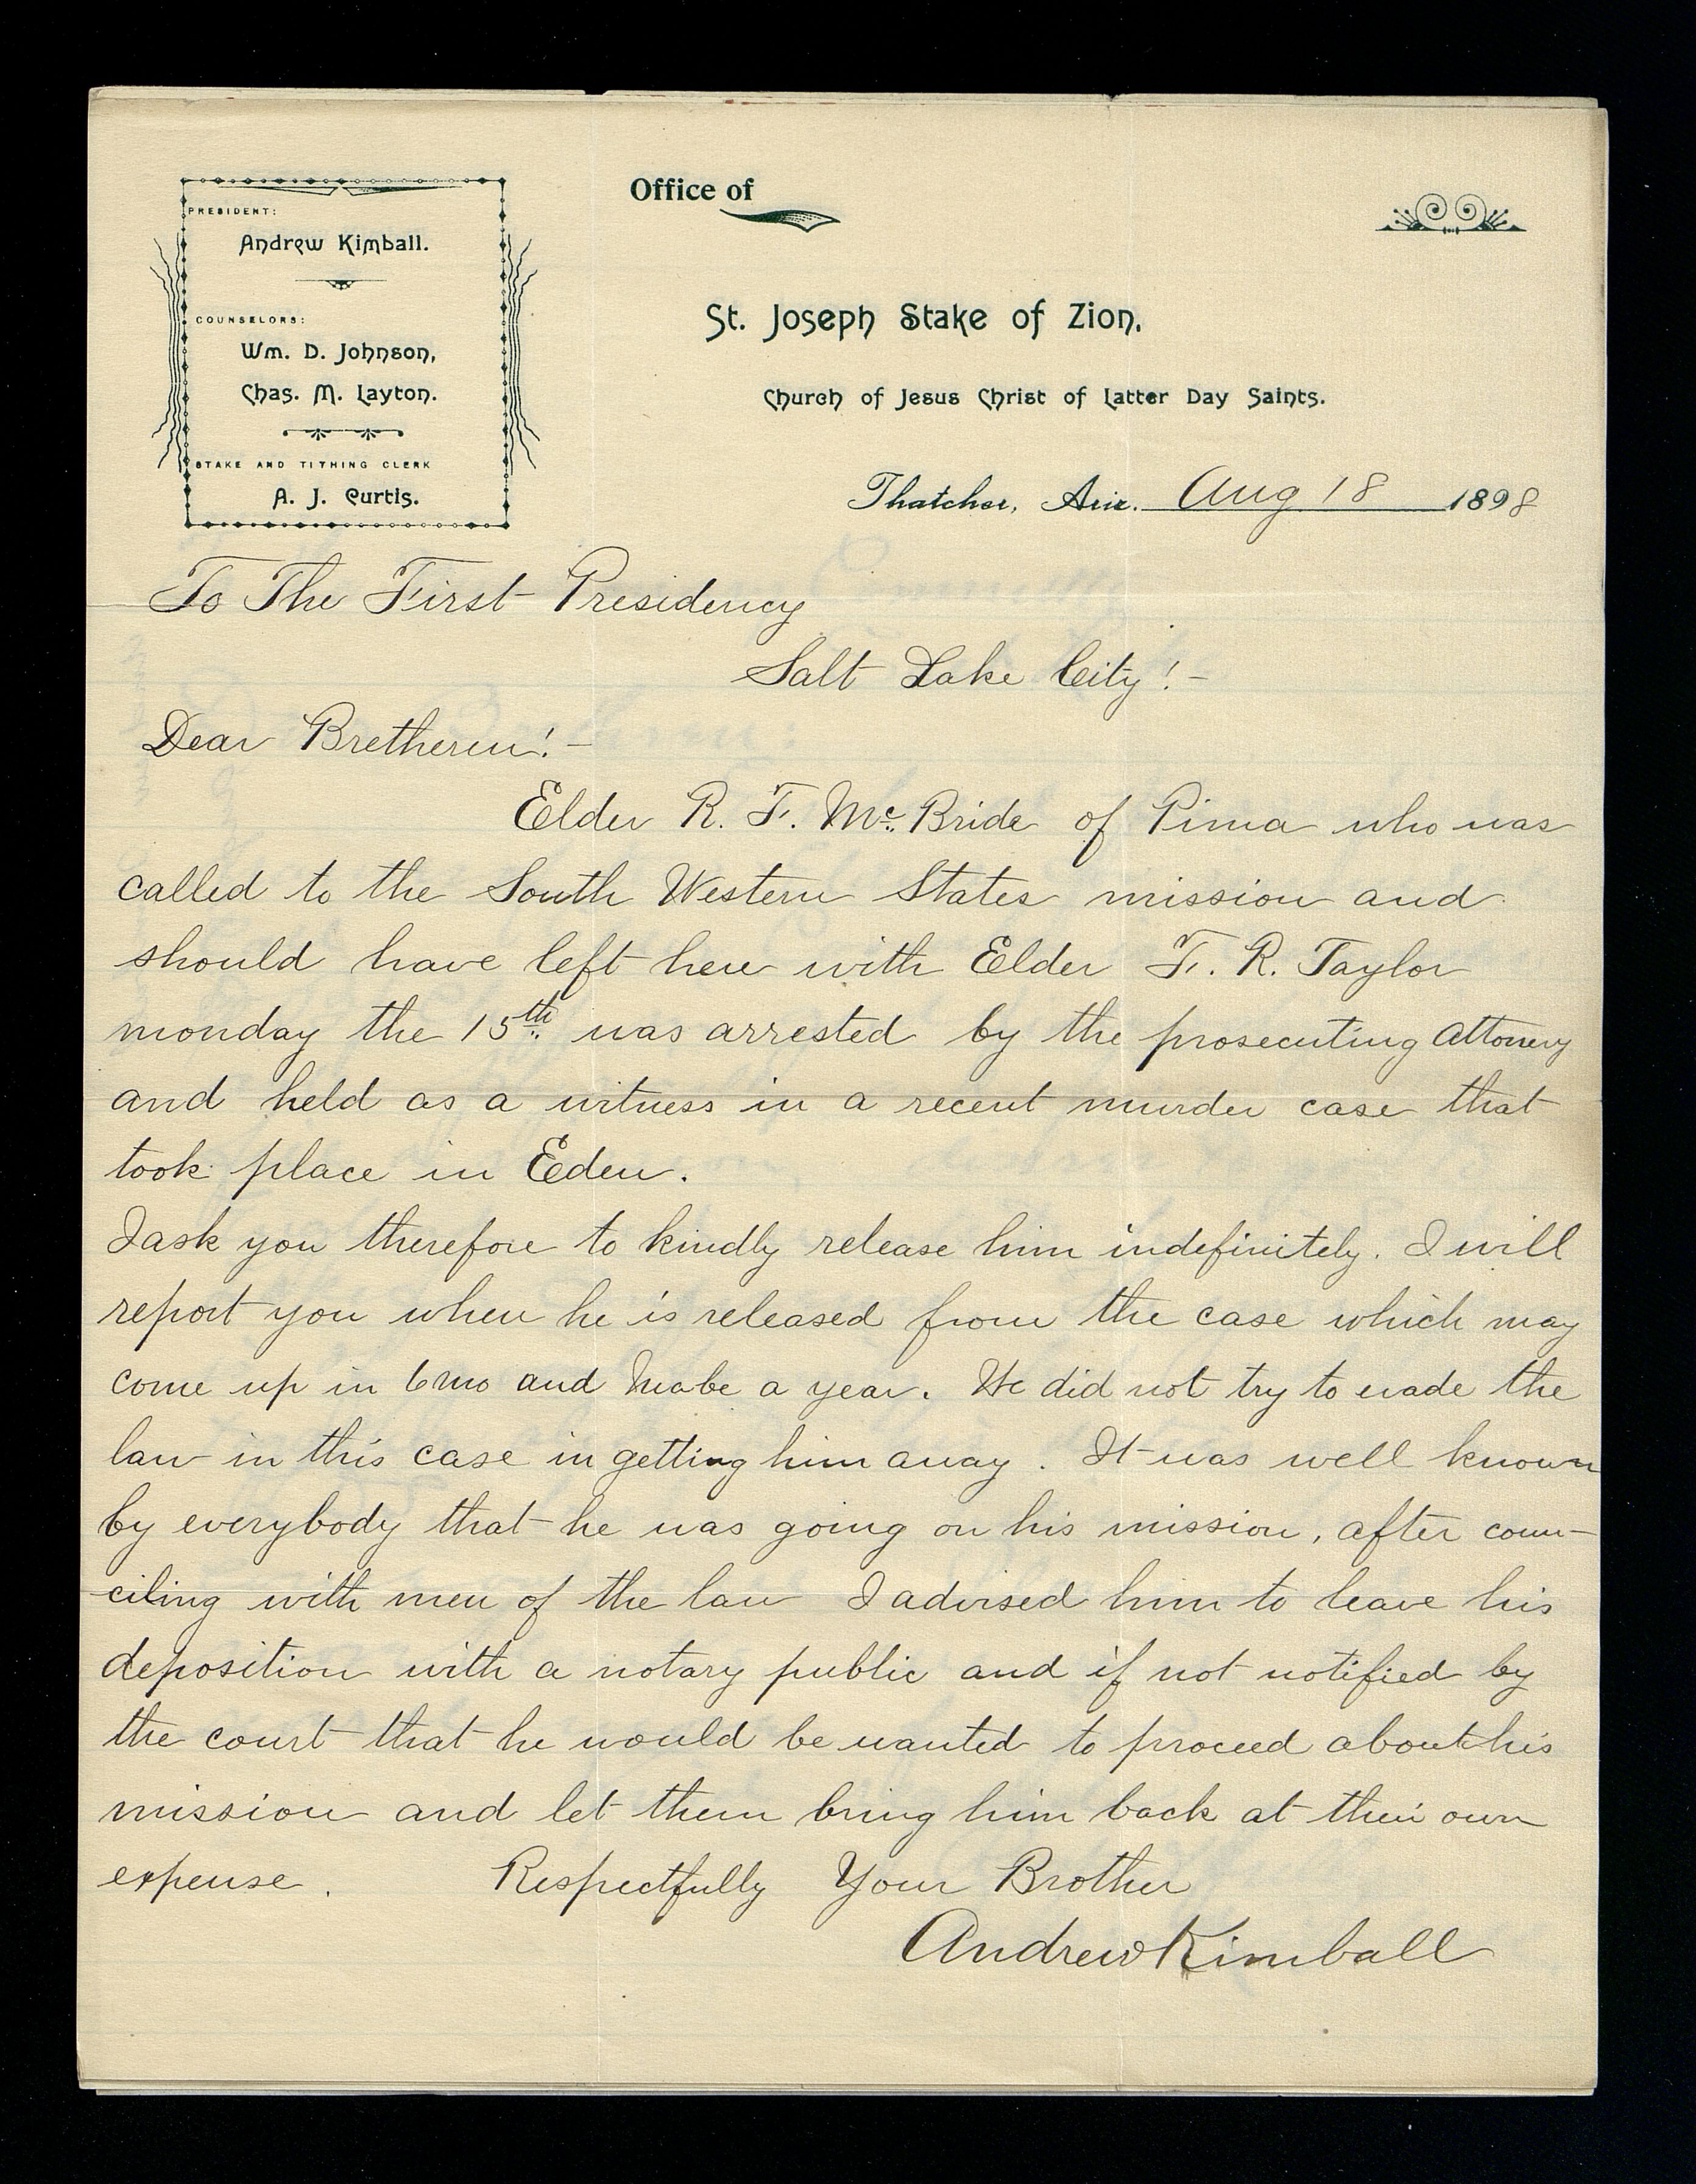 PRESIDENT:
Andrew Kimball.
COUNSELORS:
Wm. D. Johnson,
Chas. M. Layton.
STAKE AND TITHING CLERK
A. J. Curtis.
Office of
St. Joseph Stake of Zion,
Church of Jesus Christ of Latter Day Saints.
Thatcher, Ariz. Aug 18 1898
To The First Presidency
Salt Lake City!-
Dear Bretheren!-
Elder R. F. McBride of Pima who was
called to the South Western States mission and
should have left here with Elder F. R. Taylor
monday the 15th was arrested by the prosecuting Attorney
and held as a witness in a recent murder case that
took place in Eden.
I ask you therefore to kindly release him indefinitely. I will
report you when he is released from the case which may
come up in 6mo and mabe a year. We did not try to evade the
law in this case in getting him away. It was well known
by everybody that he was going on his mission, after coun-
ciling with men of the law I advised him to leave his
deposition with a notary public and if not notified by
the court that he would be wanted to proceed about his
mission and let them bring him back at their own
expense. Respectfully Your Brother
Andrew Kimball